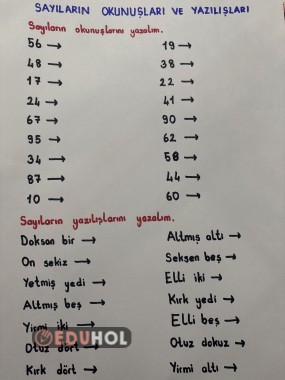 SAYILARIN OKUNUŞLARI VE YAZILIŞLARI
Sayıların okunuşlarını yazalım.
56 → 19 →
48 → 38 →
17 → 22 →
24 → 41 →
67 → 90 →
95 → 62 →
34 → 58 →
87 → 44 →
10 → 60 →
Sayıların yazılışlarını yazalım.
Doksan bir → Altmış altı →
On sekiz → Seksen beş →
Yetmiş yedi → Elli iki →
Altmış beş → Kırk yedi →
Yirmi iki → Elli beş →
EDUHOL
Otuz dört → Otuz dokuz →
Kırk dört → Yirmi altı →